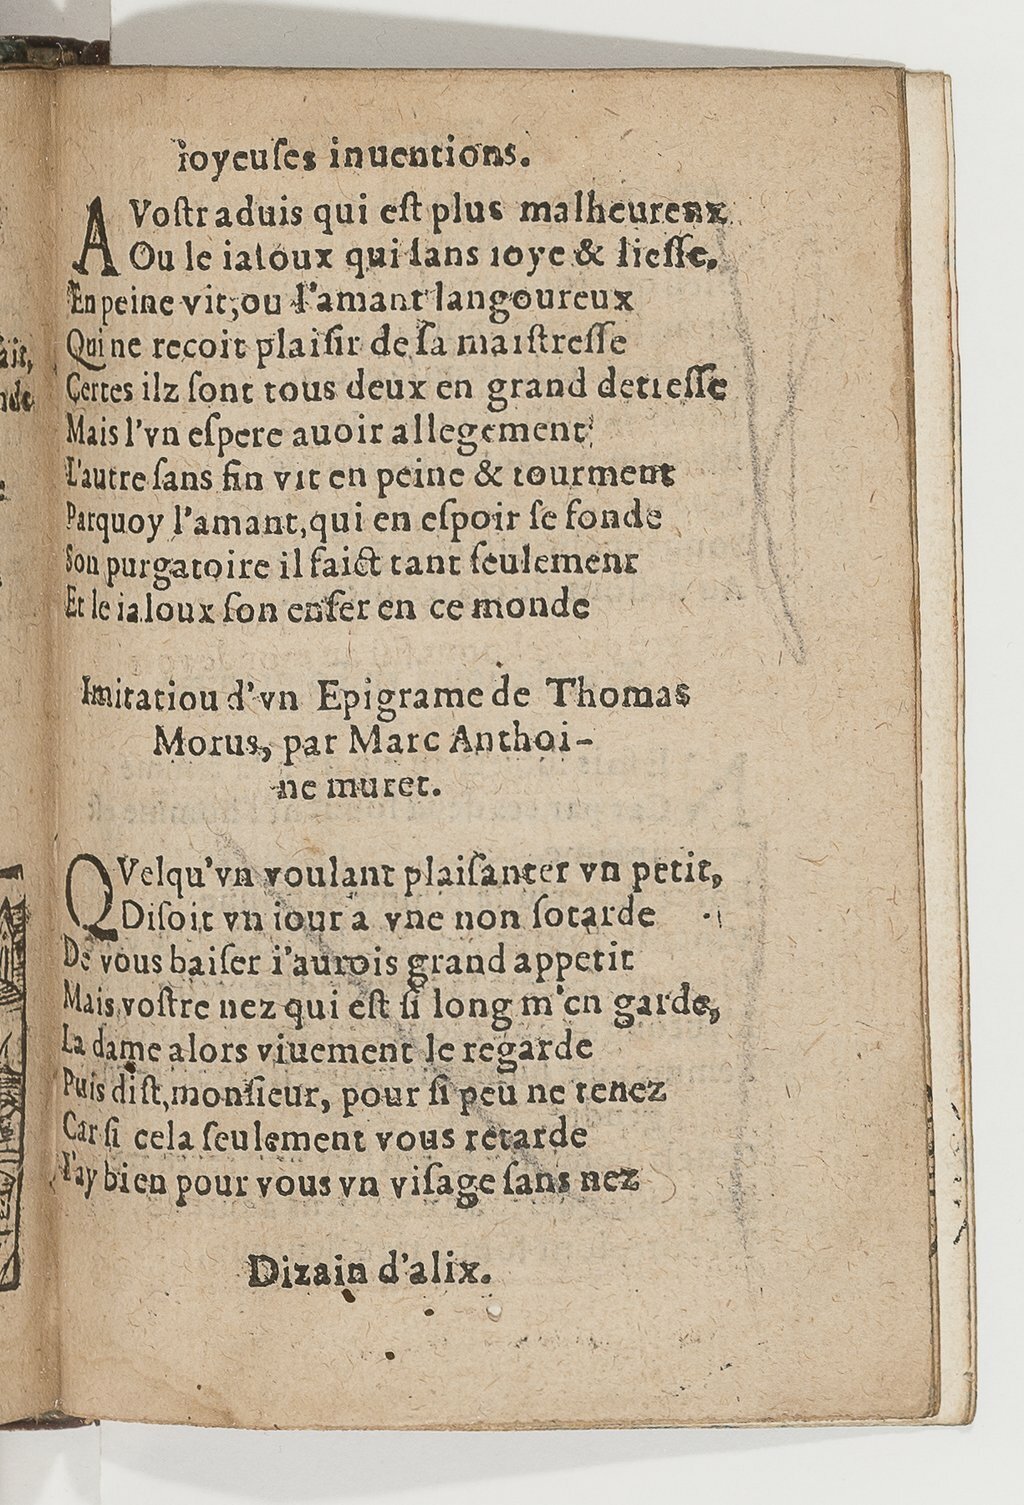 ioyeuſes inuentions.
A Voſtr aduis qui eſt plus malheurenx
Ou le ialoux qui ſans ioye & lieſſe.
En peine vit, ou l'amant langoureux
Qui ne reçoit plaiſir de ſa maiſtreſſe
Certes ilz ſont tous deux en grand detreſſe
Mais l'vn eſpere auoir allegement
L'autre ſans fin vit en peine & tourment
Parquoy l'amant, qui en eſpoir ſe fonde
Son purgatoire il faict tant ſeulement
Et le ialoux ſon enfer en ce monde
Imitatiou d'vn Epigrame de Thomas
Morus, par Marc Anthoi-
ne muret.
QVelqu'vn voulant plaiſanter vn petit,
Diſoit vn iour a vne non ſotarde
De vous baiſer i'aurois grand appetit
Mais voſtre nez qui eſt ſi long m'en garde,
La dame alors viuement le regarde
Puis diſt, monſieur, pour ſi peu ne tenez
Car ſi cela ſeulement vous retarde
I'ay bien pour vous vn viſage ſans nez
Dizain d'alix.